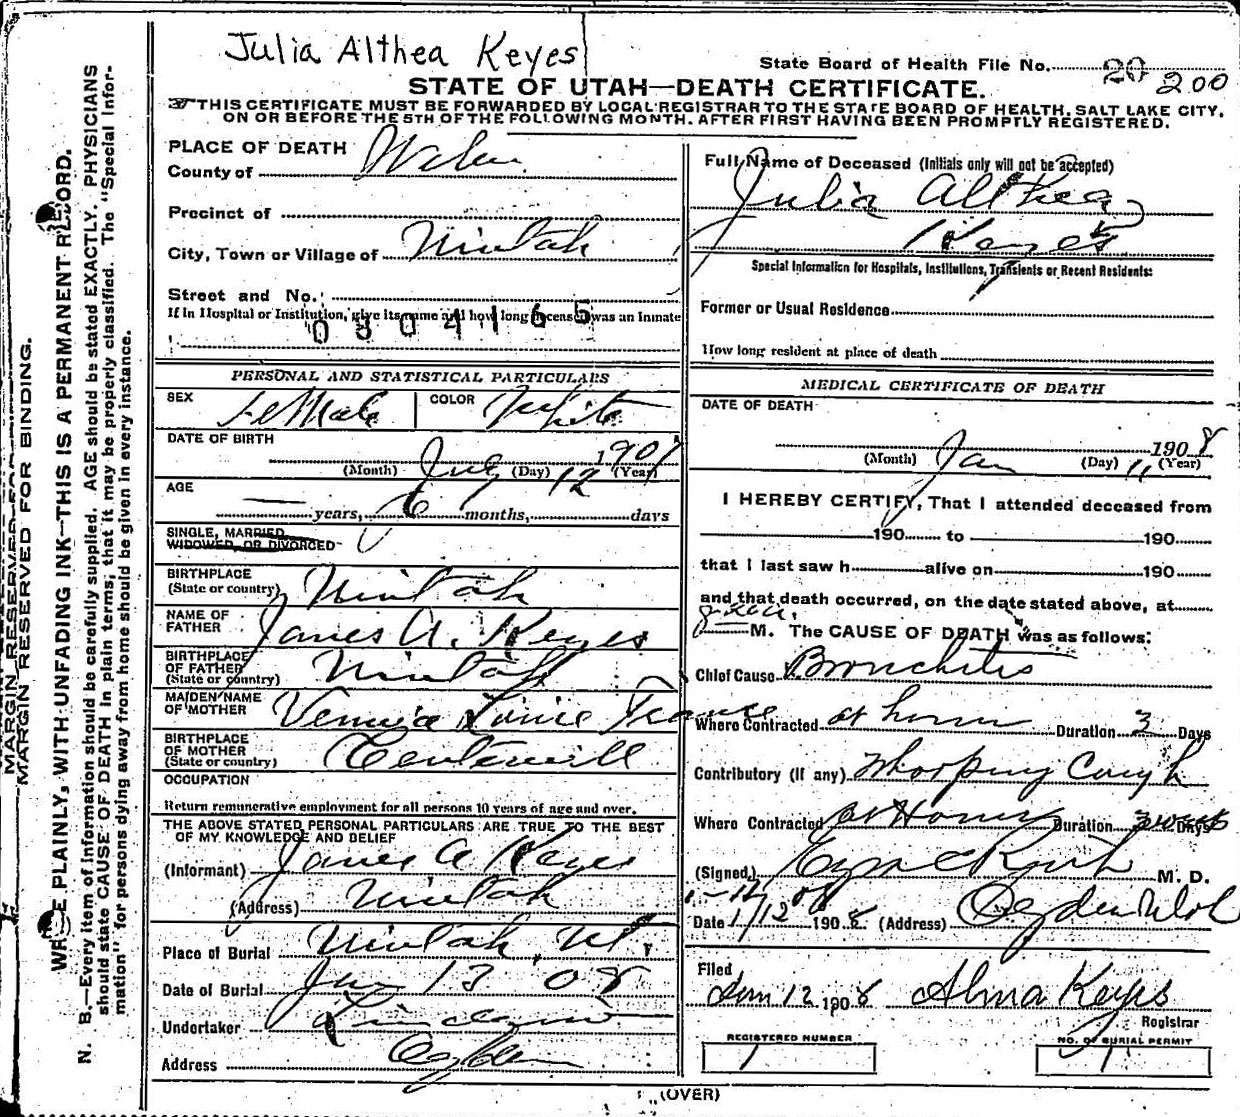 Julia Althea Keyes
State Board of Health File No. 20 200
STATE OF UTAH—DEATH CERTIFICATE.
THIS CERTIFICATE MUST BE FORWARDED BY LOCAL REGISTRAR TO THE STATE BOARD OF HEALTH, SALT LAKE CITY,
ON OR BEFORE THE 5TH OF THE FOLLOWING MONTH. AFTER FIRST HAVING BEEN PROMPTLY REGISTERED.
MARGIN RESERVED FOR BINDING.
MARGIN RESERVED FOR BINDING.
WRITE PLAINLY, WITH UNFADING INK—THIS IS A PERMANENT RECORD.
N. B.—Every item of information should be carefully supplied. AGE should be stated EXACTLY. PHYSICIANS
should state CAUSE OF DEATH in plain terms, that it may be properly classified. The "Special Infor-
mation" for persons dying away from home should be given in every instance.
PLACE OF DEATH
County of Weber
Precinct of
City, Town or Village of Uintah
Street and No.
If in Hospital or Institution, give its name and how long deceased was an Inmate
0804165
PERSONAL AND STATISTICAL PARTICULARS
SEX Female COLOR White
DATE OF BIRTH
(Month) July (Day) 12 1907 (Year)
AGE
— years, 6 months, days
SINGLE, MARRIED
WIDOWED, OR DIVORCED
BIRTHPLACE
(State or country) Uintah
NAME OF
FATHER James A. Keyes
BIRTHPLACE
OF FATHER
(State or country) Uintah
MAIDEN NAME
OF MOTHER
BIRTHPLACE
OF MOTHER
(State or country) Centervill
OCCUPATION
Return remunerative employment for all persons 10 years of age and over.
THE ABOVE STATED PERSONAL PARTICULARS ARE TRUE TO THE BEST
OF MY KNOWLEDGE AND BELIEF
(Informant) James A Keyes
(Address) Uintah
Place of Burial Uintah, Ut.
Date of Burial Jan 13 08
Undertaker
Address Ogden
Full Name of Deceased (Initials only will not be accepted)
Julia Althea
Keyes
Special Information for Hospitals, Institutions, Transients or Recent Residents:
Former or Usual Residence
How long resident at place of death
MEDICAL CERTIFICATE OF DEATH
DATE OF DEATH
(Month) Jan (Day) 11 1908 (Year)
I HEREBY CERTIFY, That I attended deceased from
190 to 190
that I last saw h alive on 190
and that death occurred, on the date stated above, at
M. The CAUSE OF DEATH was as follows:
Chief Cause Bronchitis
Where Contracted at home Duration 3 Days
Contributory (if any) Whooping Cough
Where Contracted at Home Duration 3 weeks Days
(Signed) M. D.
1-12 08
Date 1/12 1908 (Address) Ogden Utah
Filed
Jan 12 1908 Alma Keyes
Registrar
REGISTERED NUMBER
1
NO. OF BURIAL PERMIT
1
(OVER)